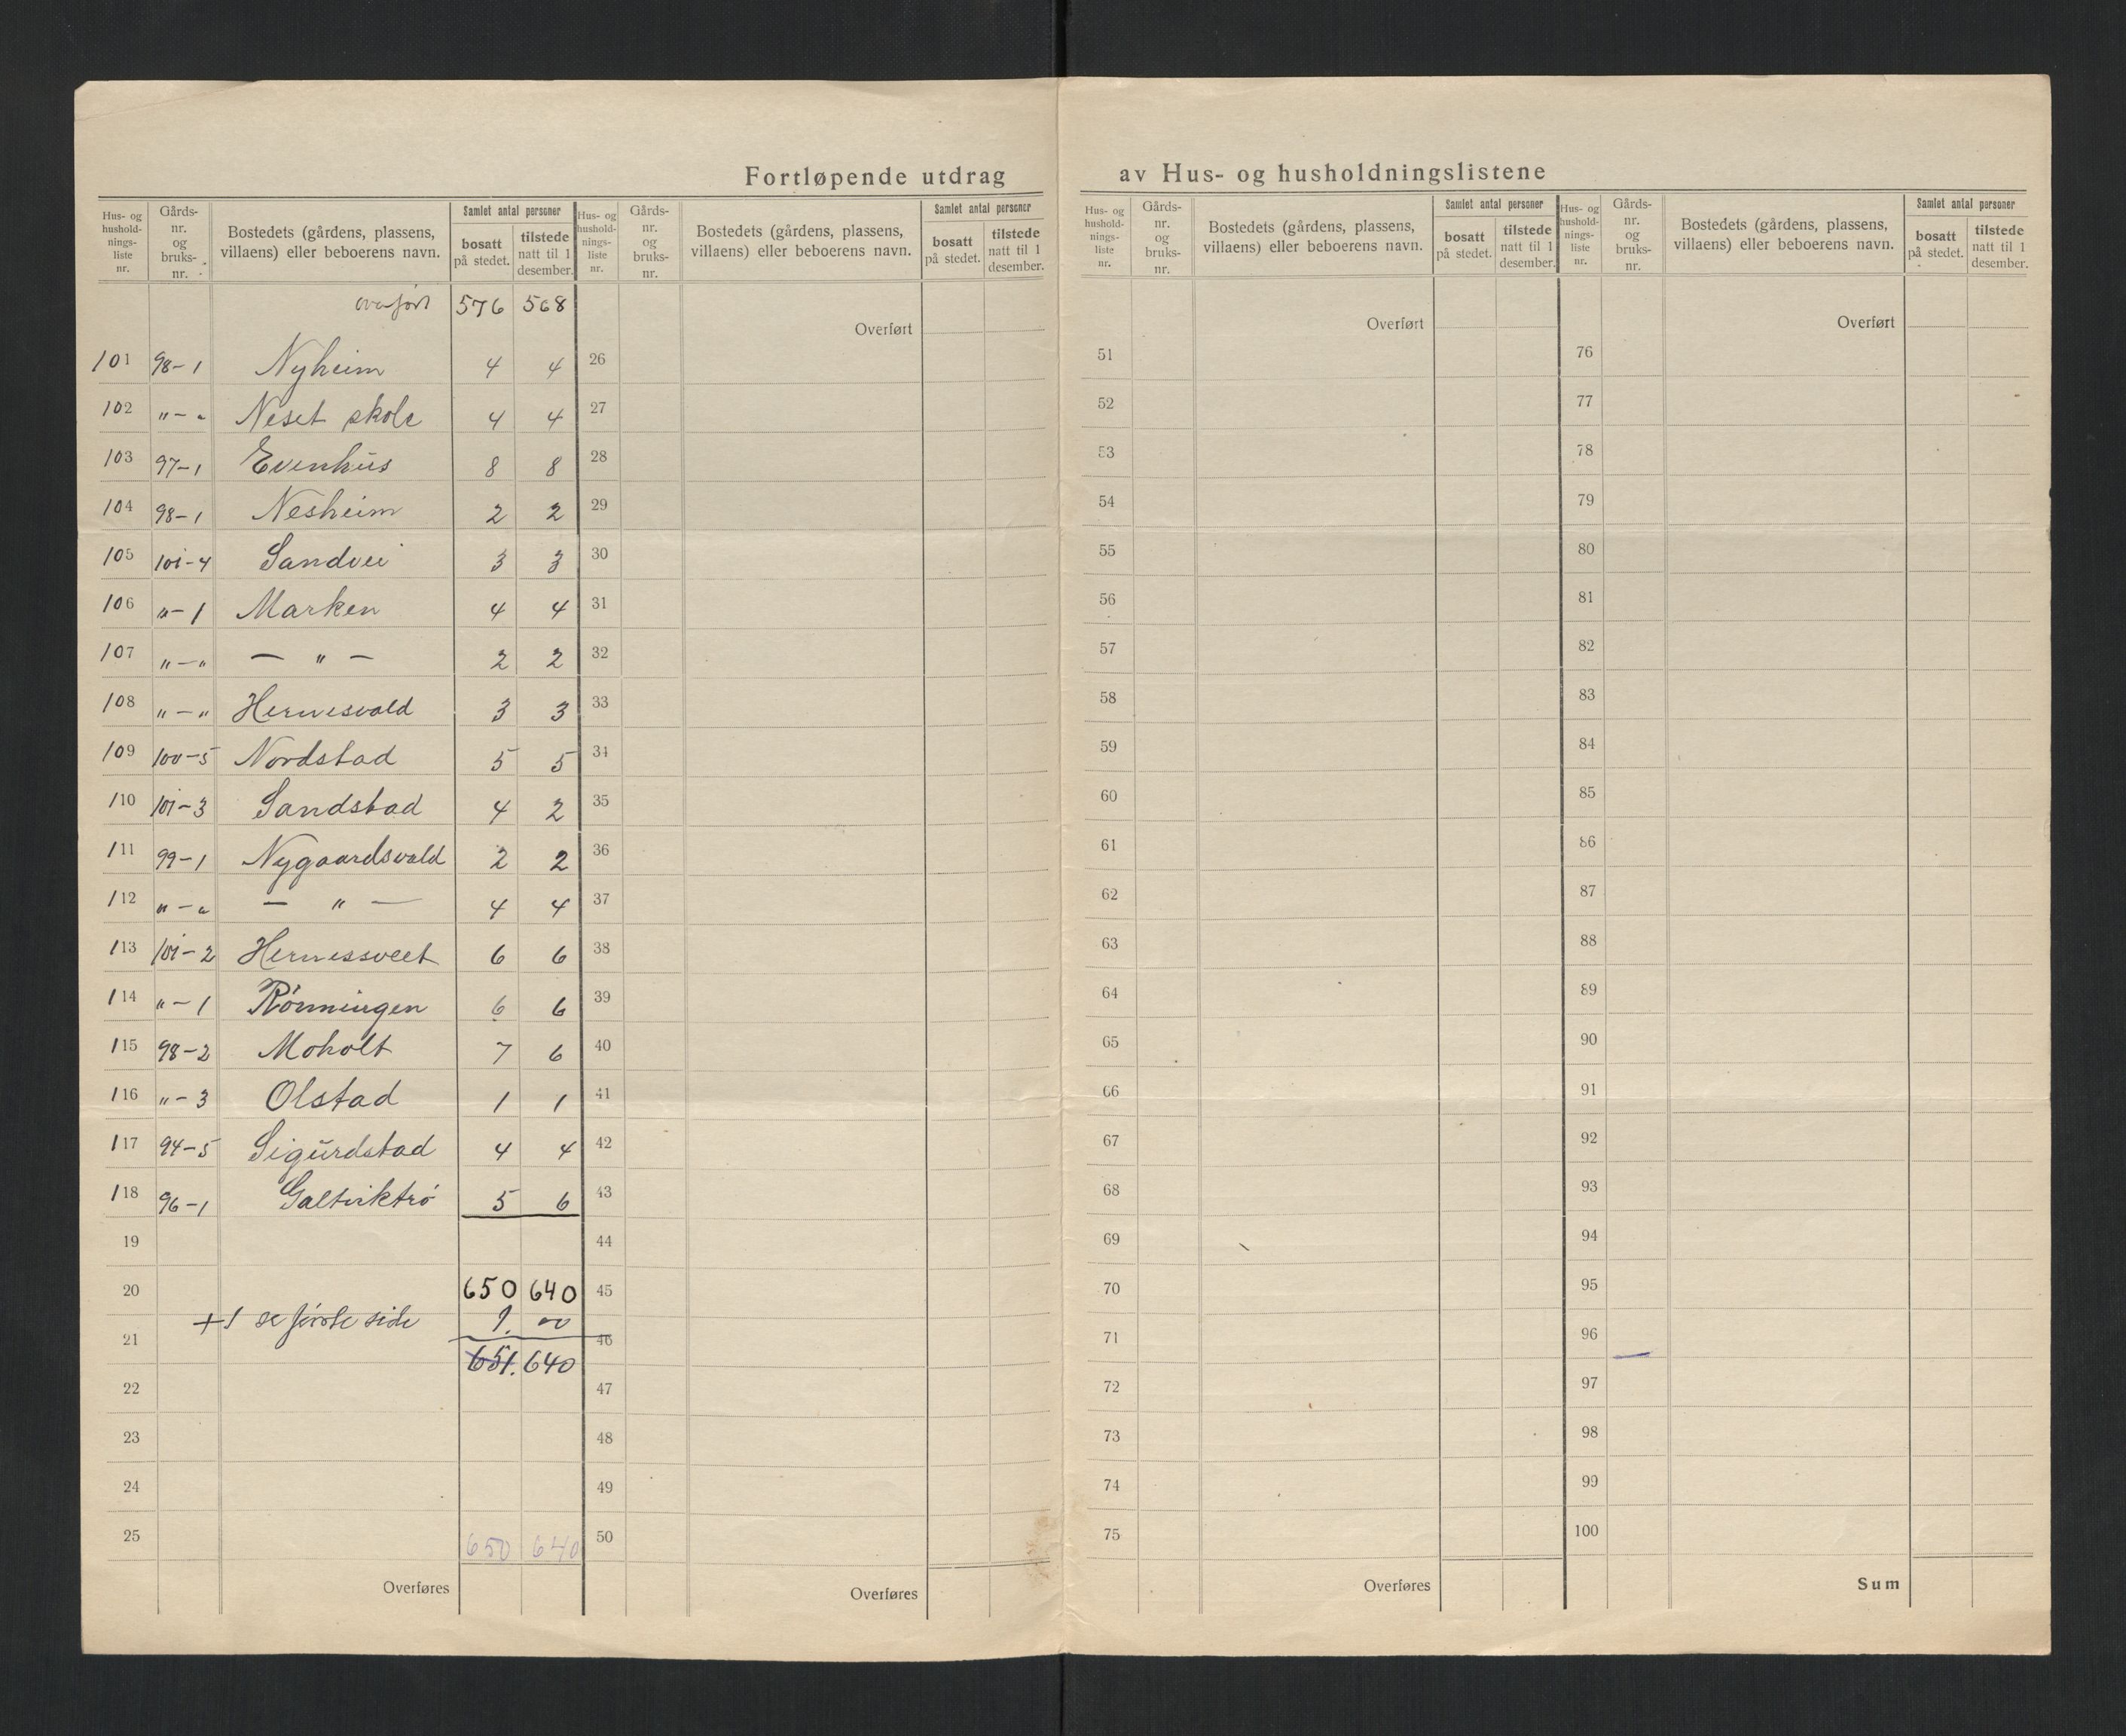 Fortløpende utdrag av Hus- og husholdningslistene
Hus- og hushold-nings-liste nr. Gårds-nr. og bruks-nr. Bostedets (gårdens, plassens, villaens) eller beboerens navn. Samlet antal personer bosatt på stedet. tilstede natt til 1 desember.
overført 576 568
101 98-1 Nyheim 4 4
102 "-" Neset skole 4 4
103 97-1 Evenhus 8 8
104 98-1 Nesheim 2 2
105 101-4 Sandvei 3 3
106 "-1 Marken 4 4
107 "-" — " — 2 2
108 "-" Hernesvald 3 3
109 100-5 Nordstad 5 5
110 101-3 Sandstad 4 2
111 99-1 Nygaardsvald 2 2
112 "-" — " — 4 4
113 101-2 Hernessveet 6 6
114 "-1 Rønningen 6 6
115 98-2 Moholt 7 6
116 "-3 Olstad 1 1
117 94-5 Sigurdstad 4 4
118 96-1 Galtviktrø 5 6
19
20 650 640
+1 se første side 1. 00
21 651. 640
22
23
24
25 650 640
Overføres
Hus- og hushold-nings-liste nr. Gårds-nr. og bruks-nr. Bostedets (gårdens, plassens, villaens) eller beboerens navn. Samlet antal personer bosatt på stedet. tilstede natt til 1 desember.
Overført
26
27
28
29
30
31
32
33
34
35
36
37
38
39
40
41
42
43
44
45
46
47
48
49
50
Overføres
Hus- og hushold-nings-liste nr. Gårds-nr. og bruks-nr. Bostedets (gårdens, plassens, villaens) eller beboerens navn. Samlet antal personer bosatt på stedet. tilstede natt til 1 desember.
Overført
51
52
53
54
55
56
57
58
59
60
61
62
63
64
65
66
67
68
69
70
71
72
73
74
75
Overføres
Hus- og hushold-nings-liste nr. Gårds-nr. og bruks-nr. Bostedets (gårdens, plassens, villaens) eller beboerens navn. Samlet antal personer bosatt på stedet. tilstede natt til 1 desember.
Overført
76
77
78
79
80
81
82
83
84
85
86
87
88
89
90
91
92
93
94
95
96
97
98
99
100
Sum